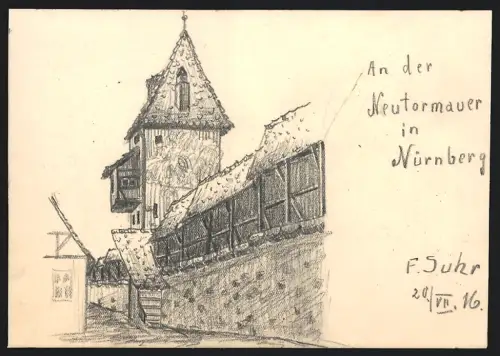 An der
Neutormauer
in
Nürnberg
F. Suhr
20/VII. 16.